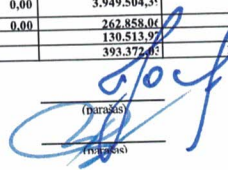 0,00 3.949.504,3
0,00 262.858,0
130.513,9
393.372,0
(parašas)
(parašas)